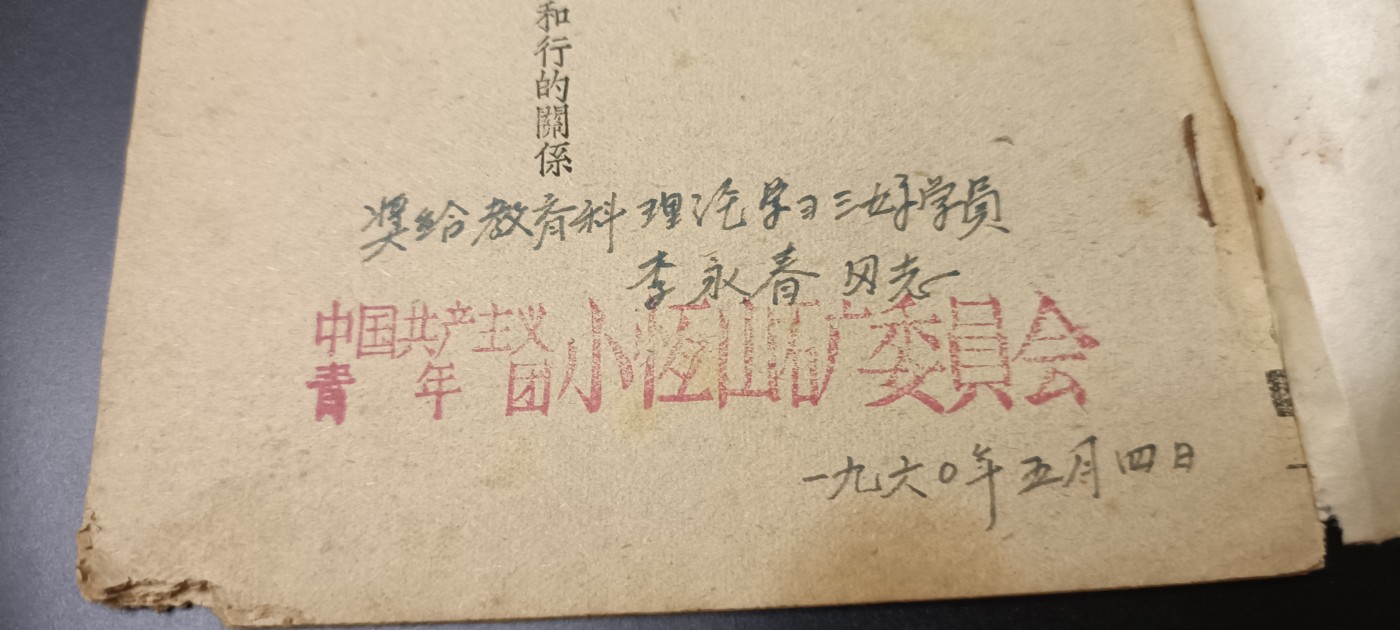 和行的關係
奖给教育科理论学习三好学员
李永春同志
中国共产主义
青年团小恆山矿委員会
一九六〇年五月四日